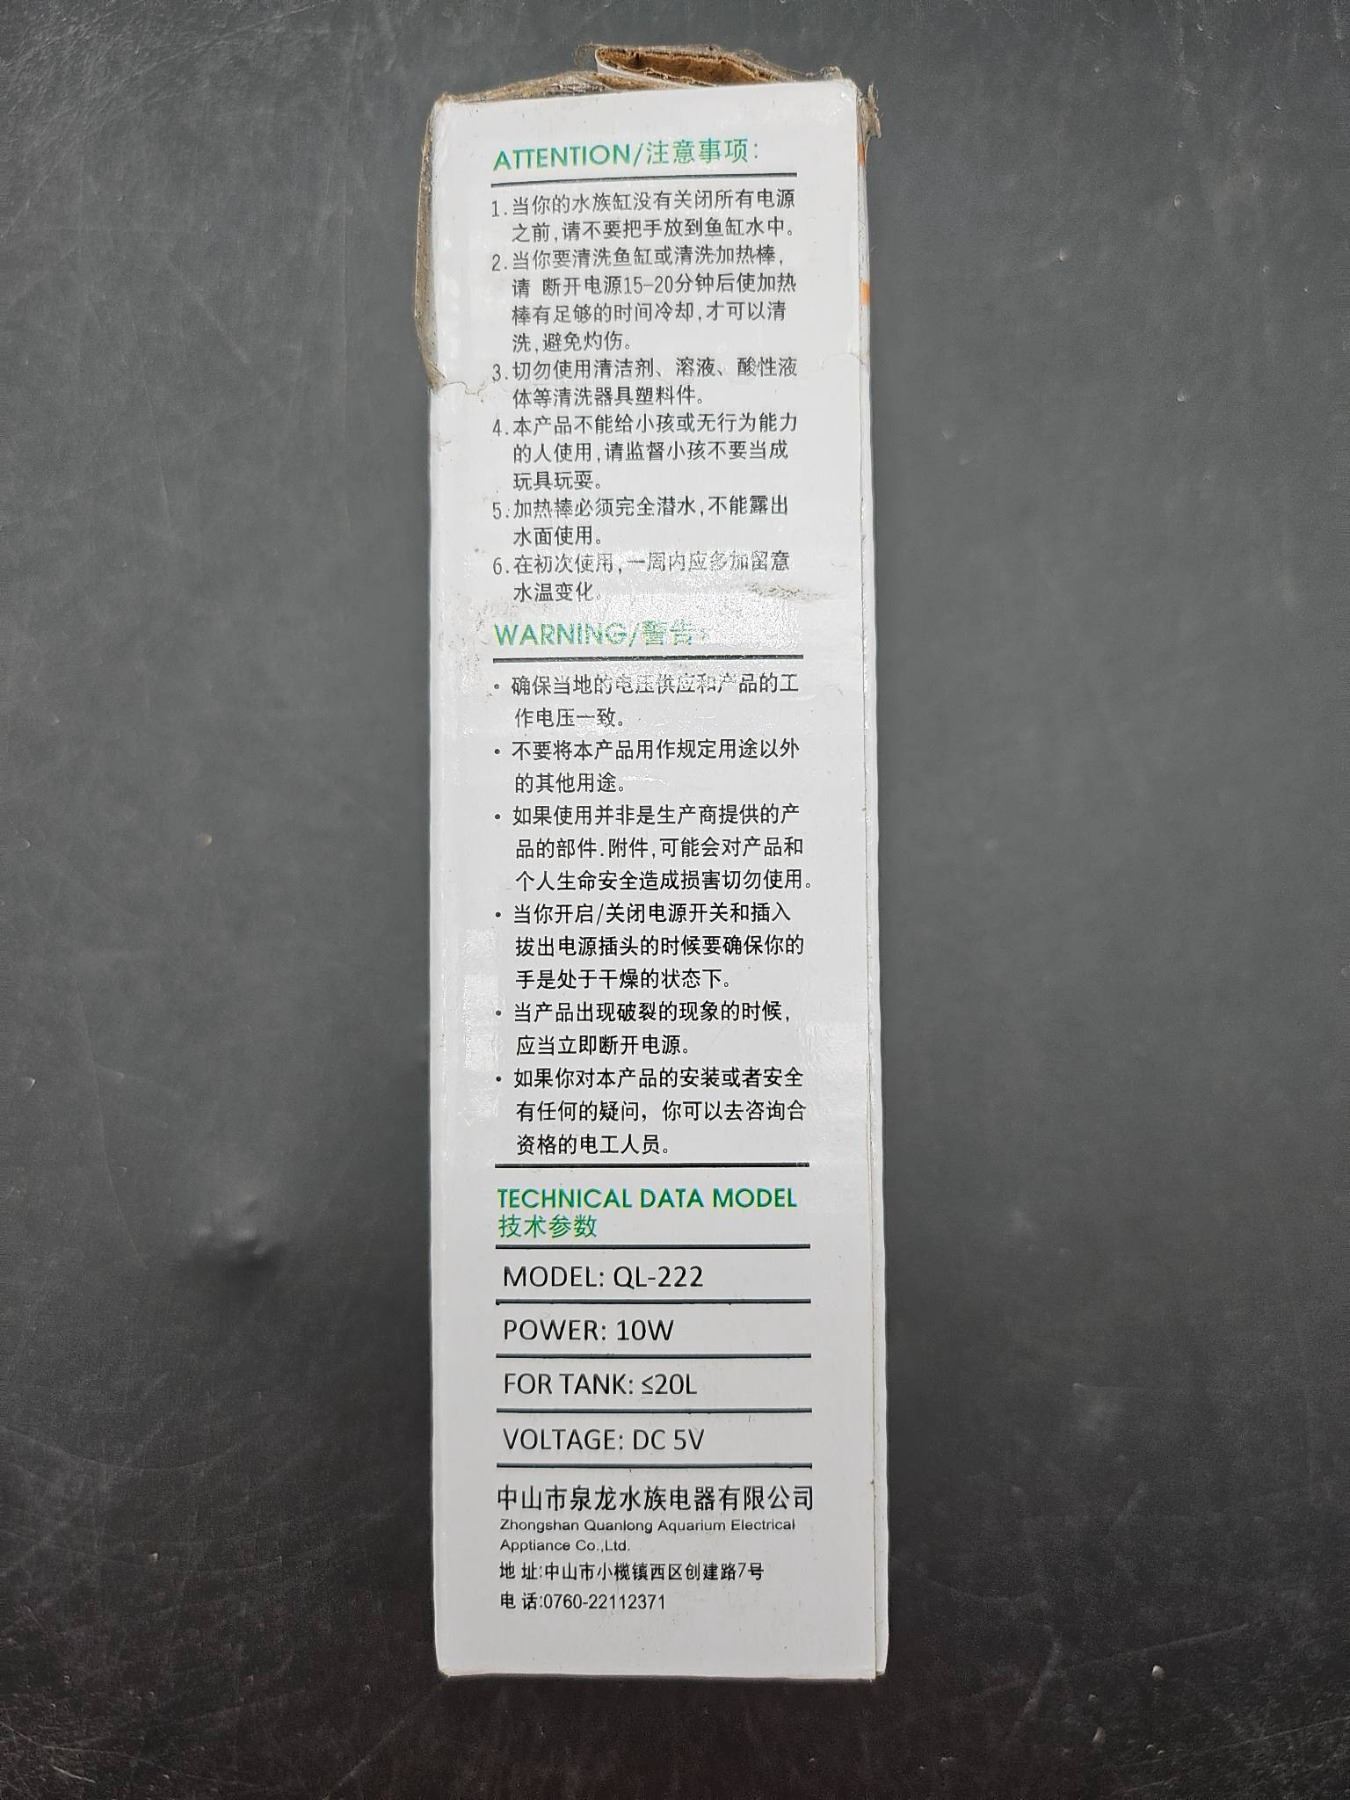 ATTENTION/注意事项:
1.当你的水族缸没有关闭所有电源
之前,请不要把手放到鱼缸水中。
2.当你要清洗鱼缸或清洗加热棒,
请 断开电源15-20分钟后使加热
棒有足够的时间冷却,才可以清
洗,避免灼伤。
3.切勿使用清洁剂、溶液、酸性液
体等清洗器具塑料件。
4.本产品不能给小孩或无行为能力
的人使用,请监督小孩不要当成
玩具玩耍。
5.加热棒必须完全潜水,不能露出
水面使用。
6.在初次使用,一周内应多加留意
水温变化。
WARNING/警告:
• 确保当地的电压供应和产品的工
作电压一致。
• 不要将本产品用作规定用途以外
的其他用途。
• 如果使用并非是生产商提供的产
品的部件.附件,可能会对产品和
个人生命安全造成损害切勿使用。
• 当你开启/关闭电源开关和插入
拔出电源插头的时候要确保你的
手是处于干燥的状态下。
• 当产品出现破裂的现象的时候,
应当立即断开电源。
• 如果你对本产品的安装或者安全
有任何的疑问, 你可以去咨询合
资格的电工人员。
TECHNICAL DATA MODEL
技术参数
MODEL: QL-222
POWER: 10W
FOR TANK: ≤20L
VOLTAGE: DC 5V
中山市泉龙水族电器有限公司
Zhongshan Quanlong Aquarium Electrical
Apptiance Co.,Ltd.
地 址:中山市小榄镇西区创建路7号
电 话:0760-22112371